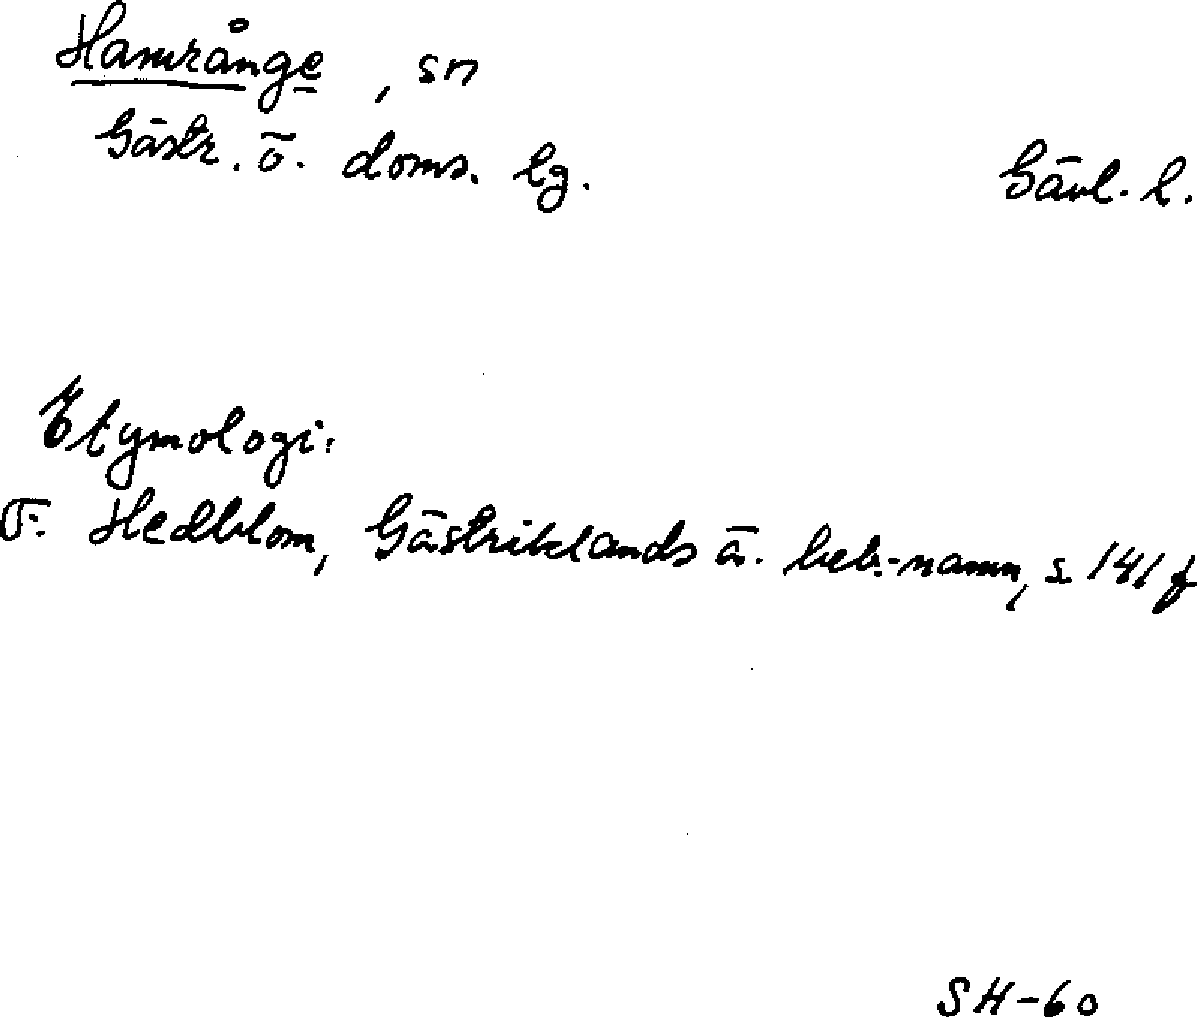 Hamrånge, sn
Gästr. ö. doms. lg. Gävl. l.
Etymologi:
F. Hedblom, Gästriklands ä. beb.-namn, s 141 f
SH-60